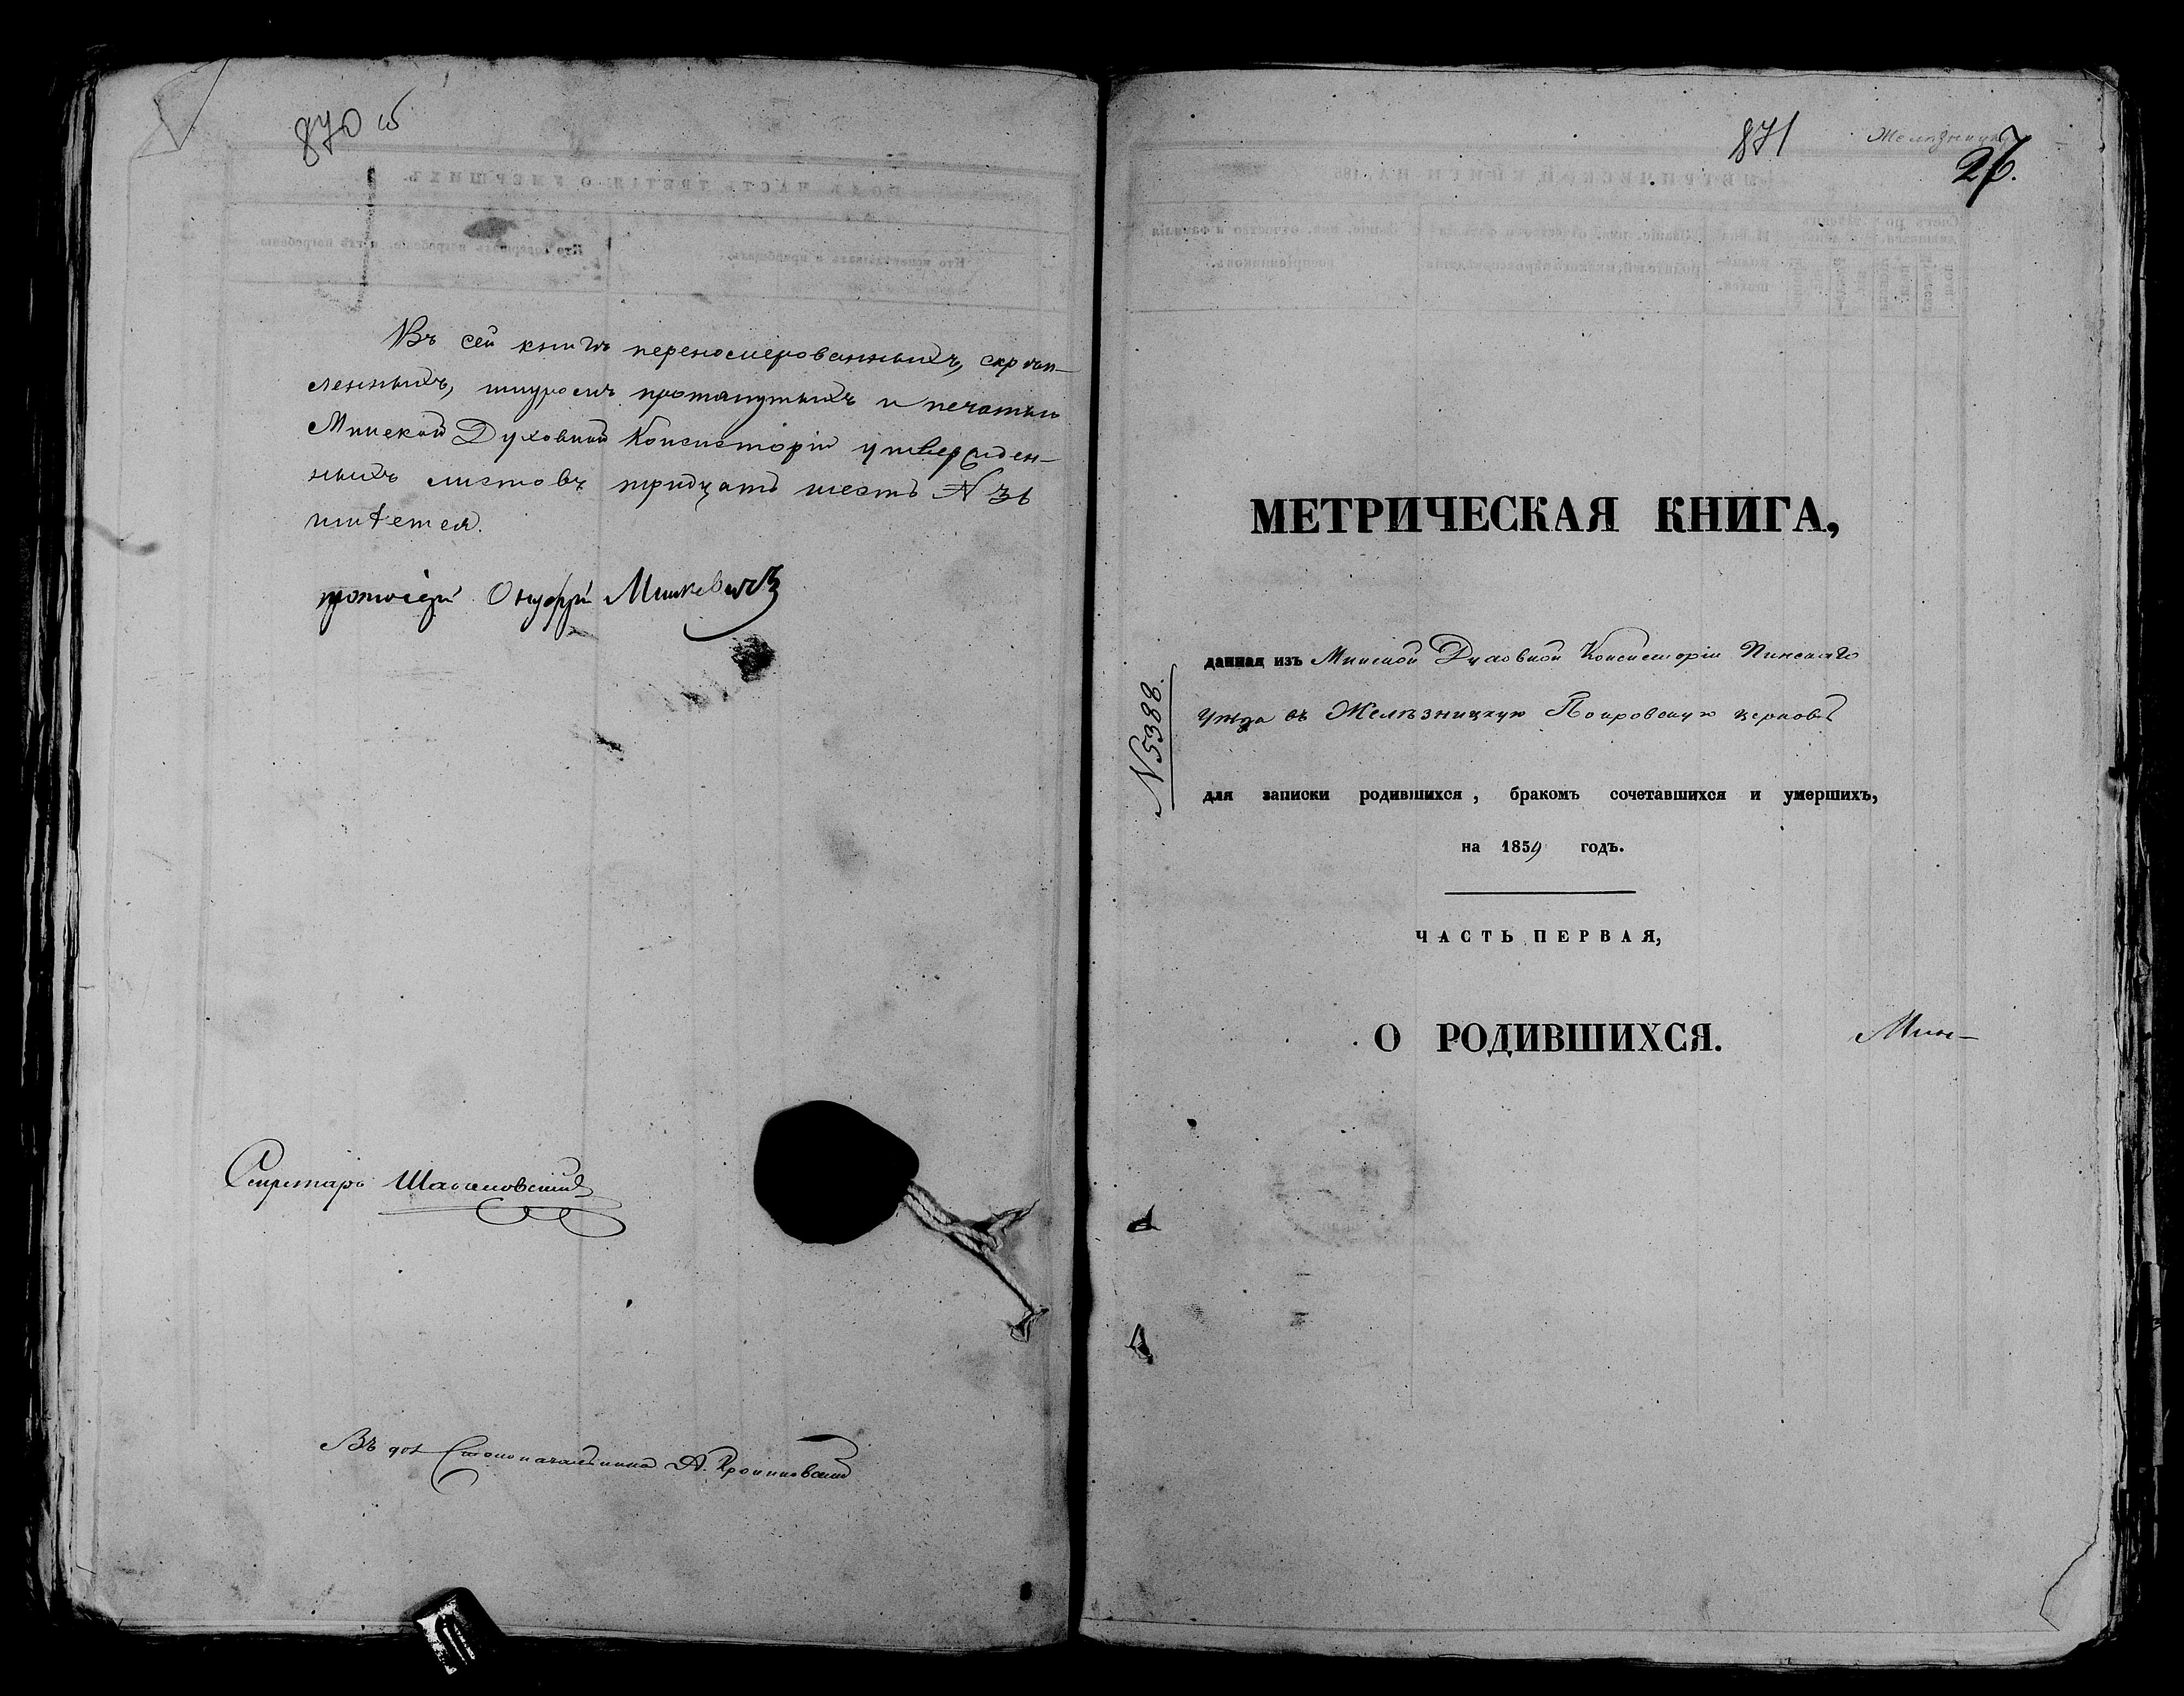 870 об
Въ сей книгѣ перенумерованныхъ, скрѣп-
ленныхъ, шнуромъ протянутыхъ и печатью
Минской Духовной Консисторіи утвержден-
ныхъ листовъ тридцать шесть N 36
имѣется.
протоіерей Онуфрій Мишкевичъ
Секретарь
Въ дол Столоначальника А.
871
27.
МЕТРИЧЕСКАЯ КНИГА,
данная изъ Минской Духовной Консисторіи Пинскаго
Уѣзда въ Желѣзницкую Покровскую церковь
N 5388.
для записки родившихся, бракомъ сочетавшихся и умершихъ,
на 1859 годъ.
ЧАСТЬ ПЕРВАЯ,
О РОДИВШИХСЯ.
Мин-